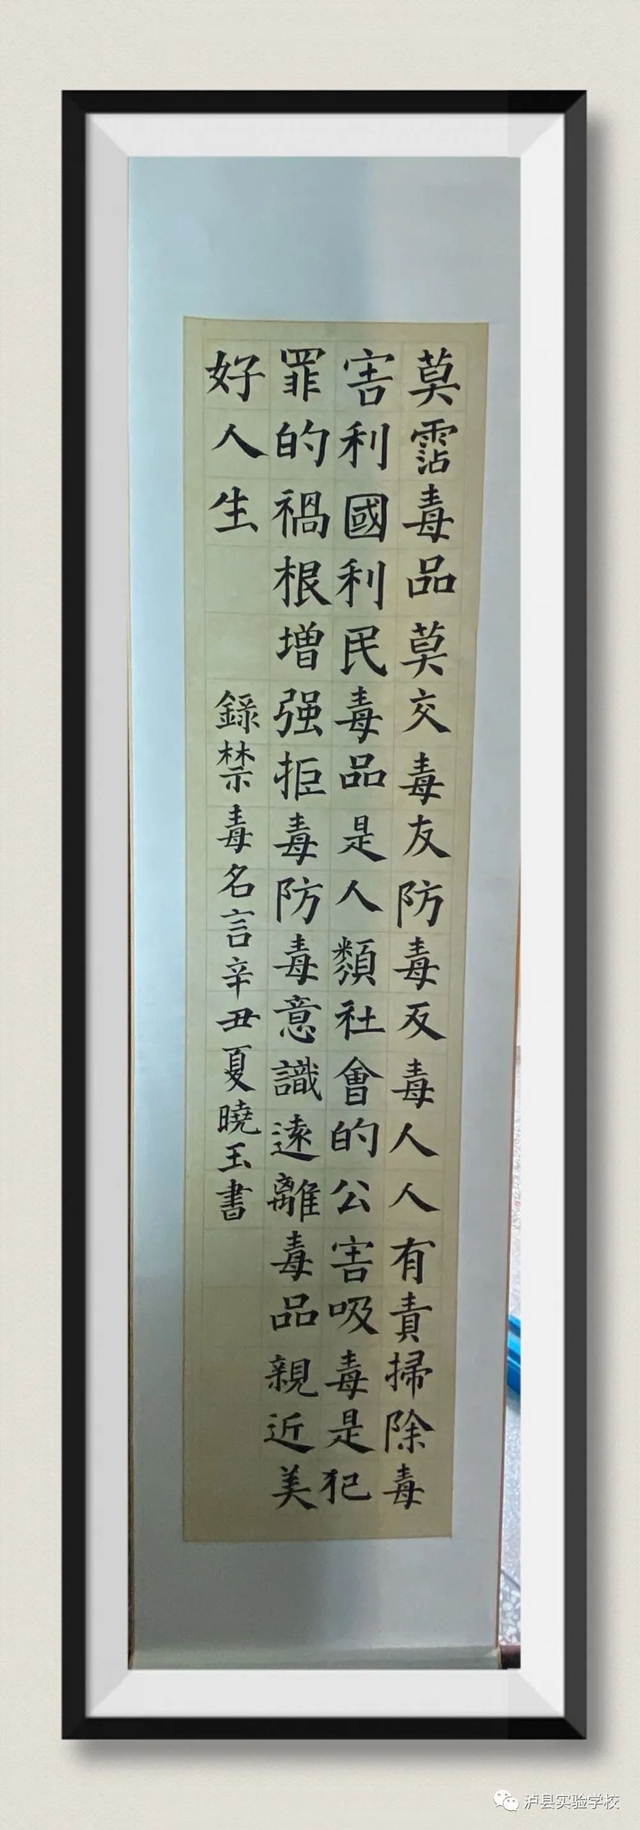 莫霑毒品莫交毒友防毒反毒人人有責掃除毒
害利國利民毒品是人類社會的公害吸毒是犯
罪的禍根增强拒毒防毒意識遠離毒品親近美
好人生
錄禁毒名言辛丑夏曉玉書
泸县实验学校